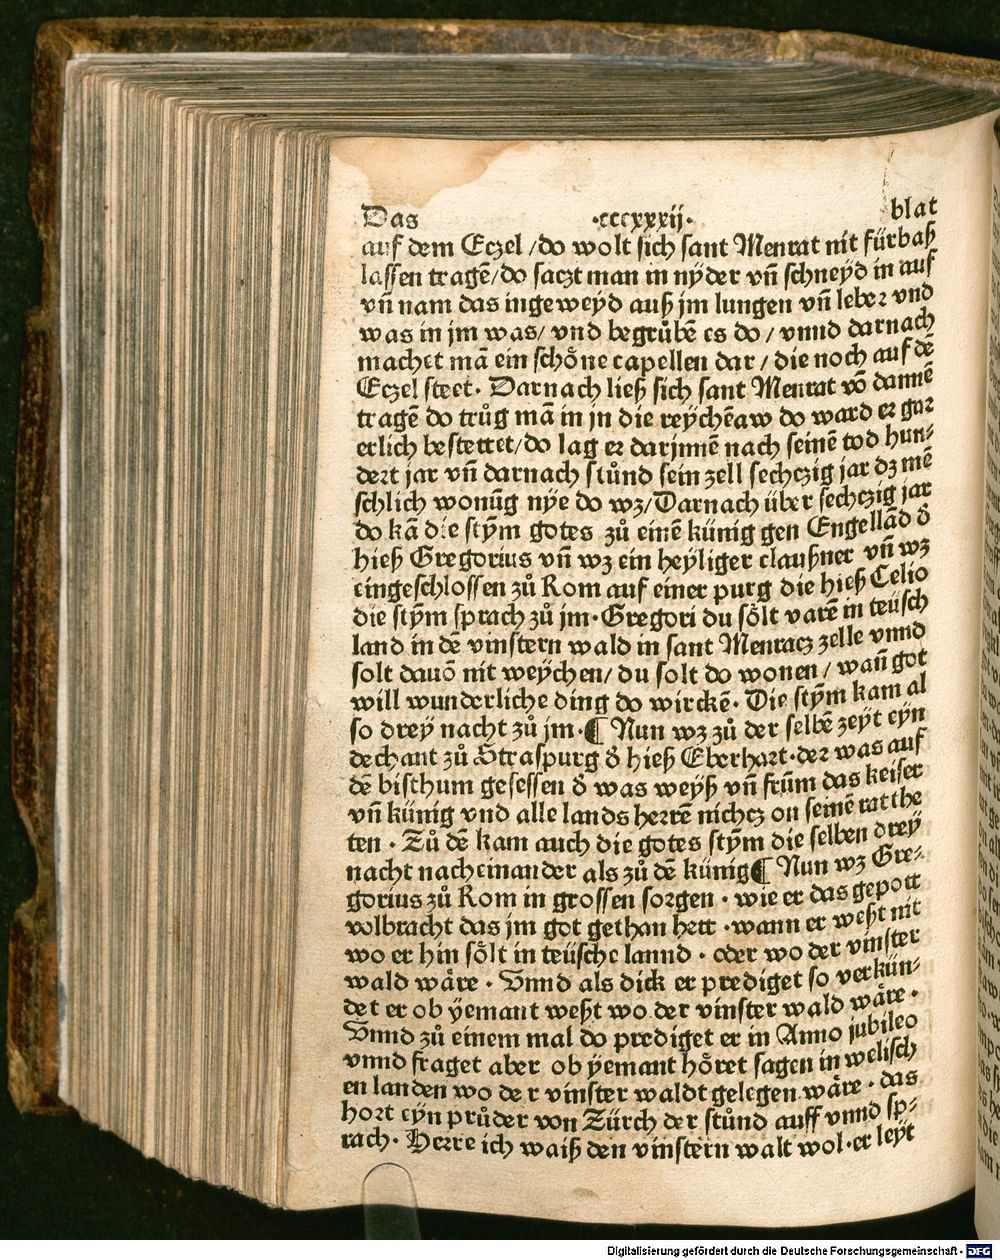 Das ·cccxxxij· blat
auf dem Eczel /do wolt sich sant Menrat nit fürbaß
lassen tragē/do saczt man in nÿder vn̄ schneÿd in auf
vn̄ nam das ingeweÿd auß jm lungen vn̄ leber vnd
was in jm was/ vnd begrůbē es do / vnnd darnach
machet mā ein schöne capellen dar / die noch auf dē
Eczel steet. Darnach ließ sich sant Menrat vō dannē
tragē do trůg mā in in die reÿchēaw do ward er gar
erlich bestettet/do lag er darjnnē nach seinē tod hun⸗
dert jar vn̄ darnach stůnd sein zell sechczig jar dz mē
schlich wonūg nÿe do wz/Darnach über sechczig jar
do kā die stȳm gotes zů einē künig gen Engellād d̕
hieß Gregorius vn̄ wz ein heÿliger claußner vn̄ wz
eingeschlossen zů Rom auf einer purg die hieß Celio
die stȳm sprach zů jm·Gregori du sölt varē in teüsch
land in dē vinstern wald in sant Menracz zelle vnnd
solt dauō nit weÿchen/ du solt do wonen / wan̄ got
will wunderliche ding do wirckē· Die stȳm kam al
so dreÿ nacht zů jm·¶ Nun wz zů der selbē zeÿt eÿn
dechant zů Straspurg d̕ hieß Eberhart·der was auf
dē bisthum gesessen d̕ was weÿß vn̄ frūm das keiser
vn̄ künig vnd alle lands herrē nichcz on seinē rat the
ten · Zů dē kam auch die gotes stȳm die selben dreÿ
nacht nacheinander als zů dē künig¶ Nun wz Gre⸗
gorius zů Rom in grossen sorgen · wie er das gepott
volbracht das jm got gethan hett ·wann er weßt nit
wo er hin sölt in teüsche lannd · oder wo der vinster
wald wäre · Vnnd als dick er prediget so verkün⸗
det er ob ÿemant weßt wo der vinster wald wäre ·
Vnnd zů einem mal do prediget er in Anno jubileo
vnnd fraget aber ob ÿemant höret sagen in welisch
en landen wo der vinster waldt gelegen wäre · das
hort eÿn průder von Zürch der stůnd auff vnnd sp⸗
rach· Herre ich waiß den vinstern walt wol·er leÿt
Digitalisierung gefördert durch die Deutsche Forschungsgemeinschaft - DFG